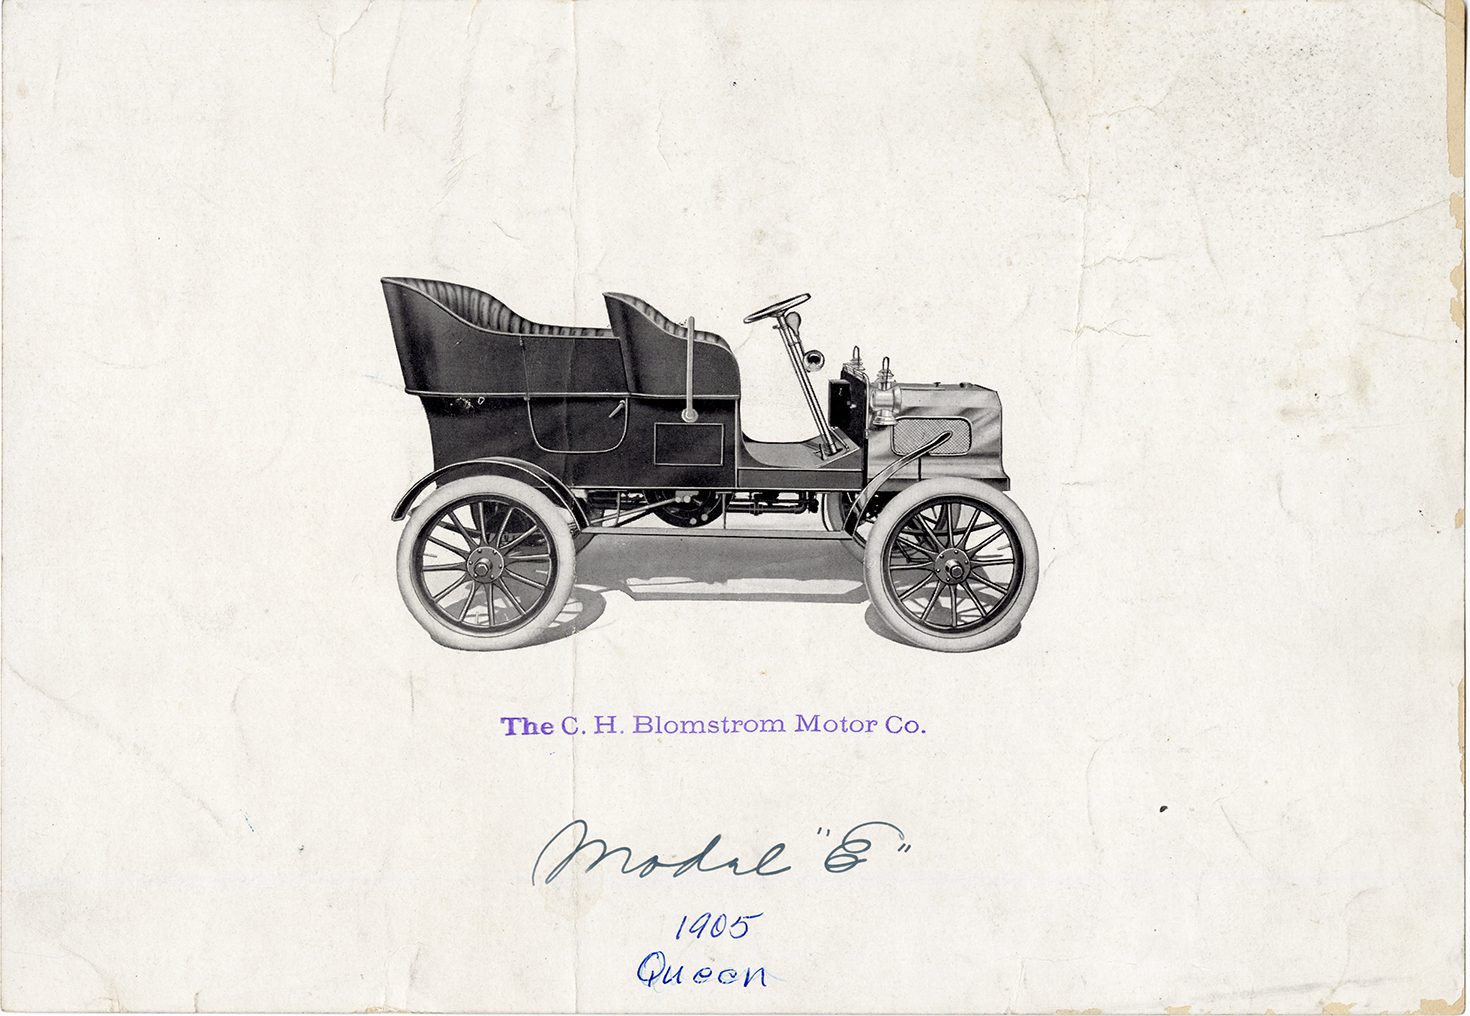 The C. H. Blomstrom Motor Co.
Model "E"
1905
Queen